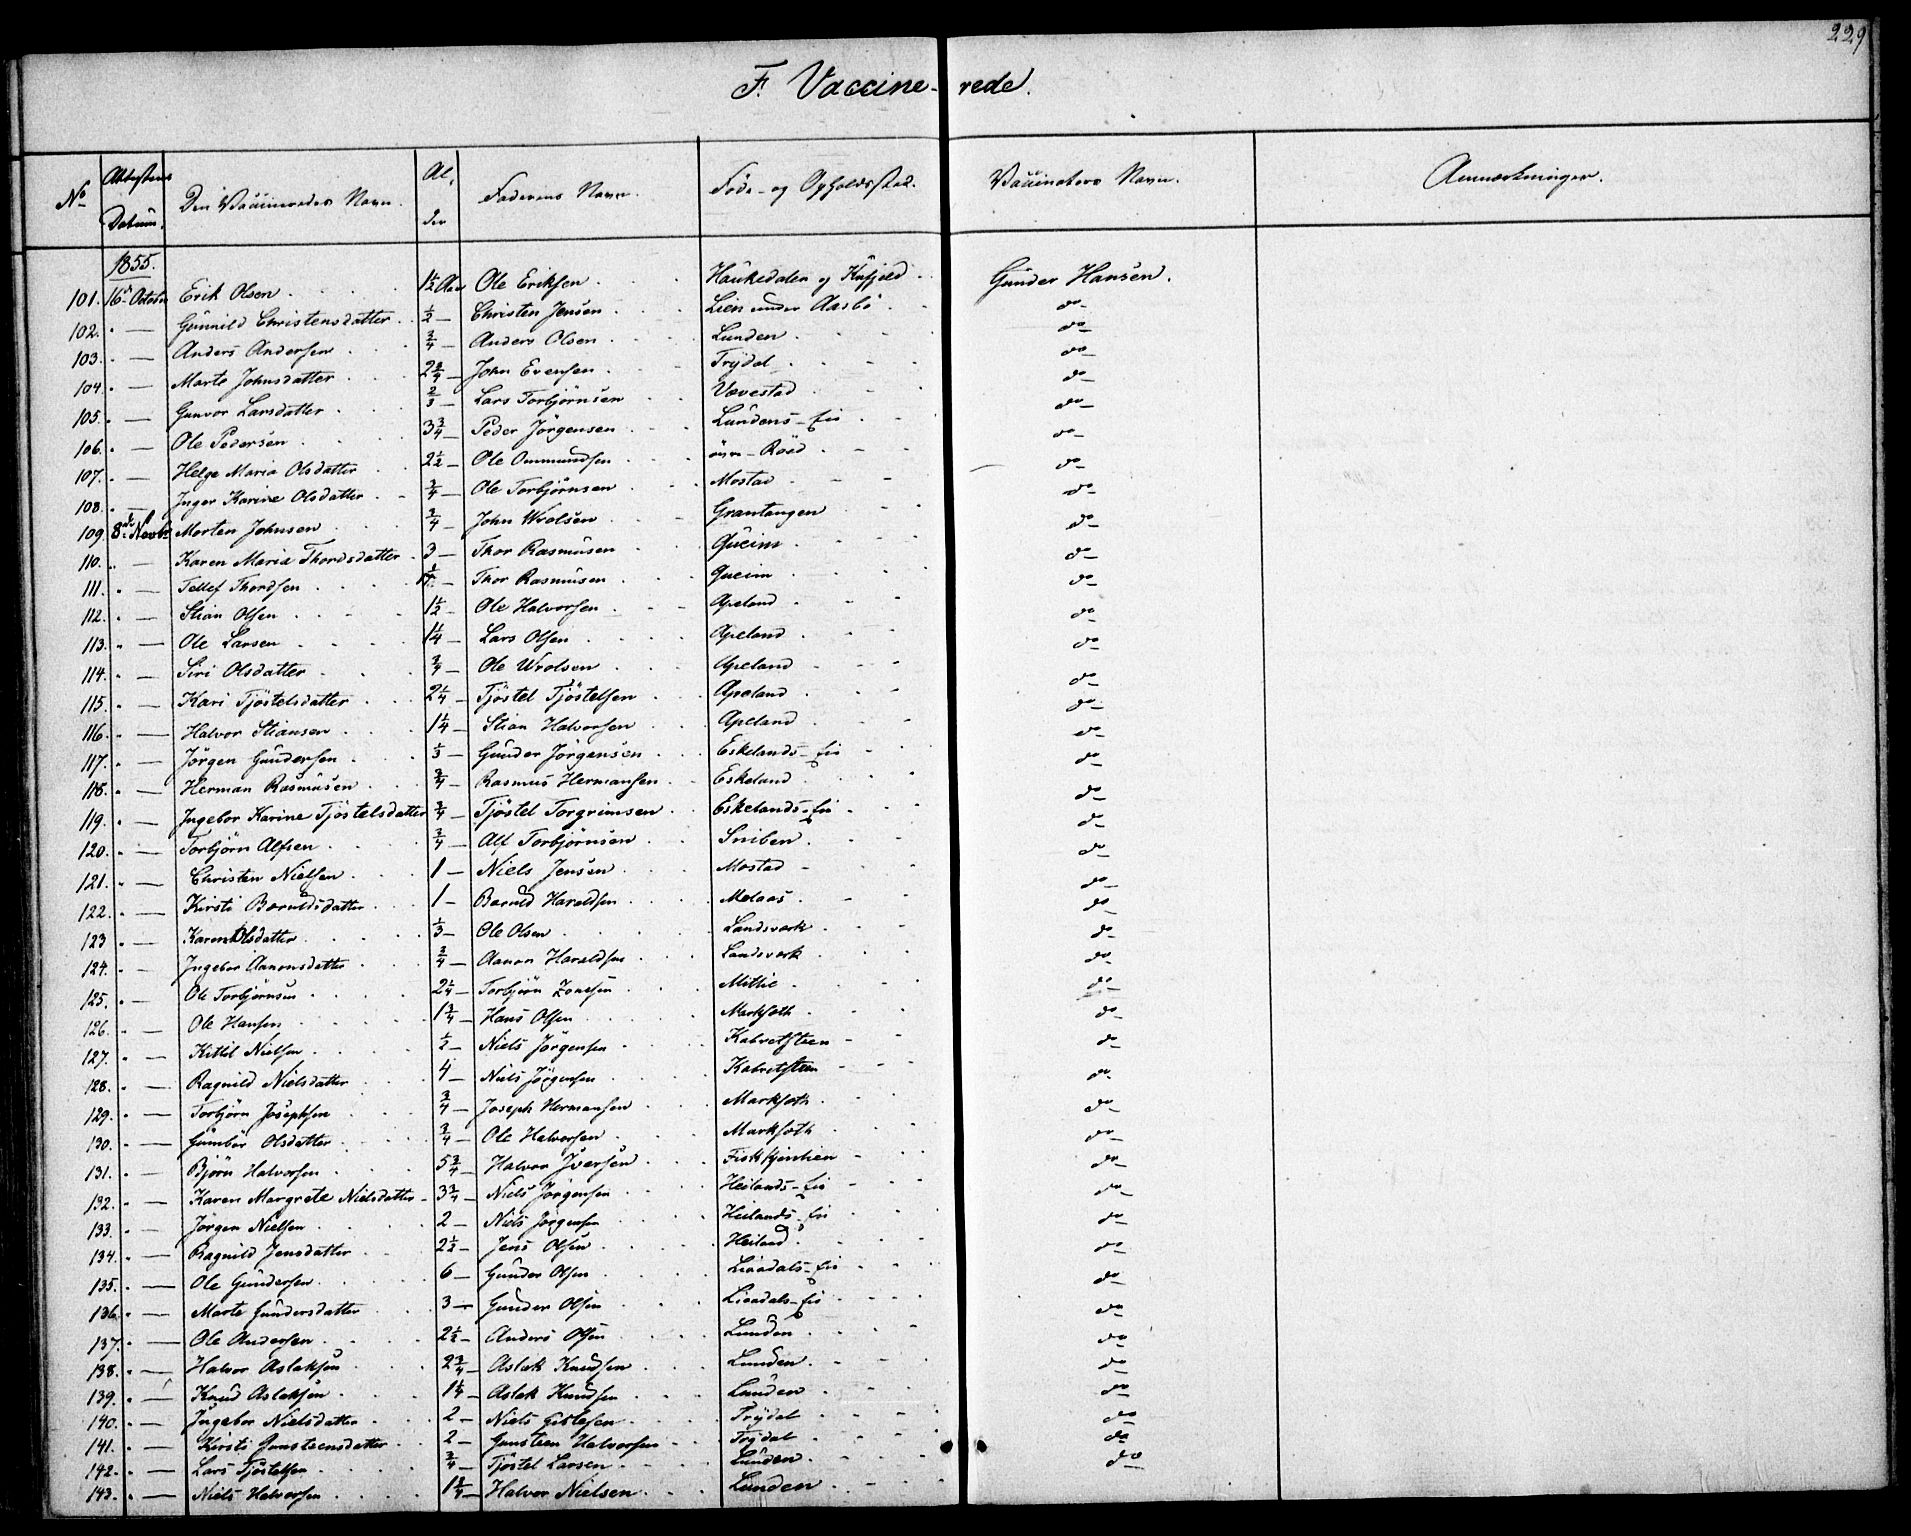 229
F. Vaccine-rede.
No Attestens Datum. Den Vaccineredes Navn. Al-der Faderens Navn. Føde- og Opholdssted. Vaccinators Navn. Anmærkninger.
1855.
101. 16de October Erik Olsen 1 1/2 Aar Ole Eriksen Haukedalen og Gunder Hansen.
102. " — Gunnild Christensdatter 1/2 — Christen Jensen Lien under Aasbö do
103. " — Anders Andersen 3/4 — Anders Olsen Lunden do
104. " — Marte Johnsdatter 2 3/4 — John Evensen Trydal do
105. " — Gunvor Larsdatter 2/3 — Lars Torbjörnsen Vævestad do
106. " — Ole Pedersen 3 3/4 — Peder Jörgensen Lundens-Eie do
107. " — Helge Maria Olsdatter 2 1/2 — Ole Ommundsen do
108. " — Inger Karine Olsdatter 3/4 — Ole Torbjörnsen Mostad do
109. 8de Novbr Morten Johnsen 3/4 — John Wrolsen Grantangen do
110. " — Karen Maria Thordsdatter 3 — Thor Rasmusen Gueim do
111. " — Tellef Thordsen Thor Rasmusen Gueim do
112. " — Stian Olsen 1 1/2 — Ole Halvorsen Apeland do
113. " — Ole Larsen 1 1/4 — Lars Olsen Apeland do
114. " — Siri Olsdatter 3/4 — Ole Wrolsen Apeland do
115. " — Kari Tjöstelsdatter 2 1/4 — Tjöstel Tjöstelsen Apeland do
116. " — Halvor Stiansen 1 1/4 — Stian Halvorsen Apeland do
117. " — Jörgen Gundersen 1/3 — Gunder Jörgensen Eskelands-Eie do
118. " — Herman Rasmusen 3/4 — Rasmus Hermansen Eskeland do
119. " — Ingebor Karine Tjöstelsdatter 3/4 — Tjöstel Torgrimsen Eskelands-Eie do
120. " — Torbjörn Alfsen 3/4 — Alf Torbjörnsen Sniben do
121. " — Christen Nielsen 1 — Niels Jensen Mostad do
122. " — Kirsti Baruldsdatter 1 — Baruld Haraldsen Molaas do
123 " — Karen Olsdatter 1/3 — Ole Olsen Landsverk do
124. " — Ingebor Aanonsdatter 3/4 — Aanon Haraldsen Landsverk do
125. " — Ole Torbjörnsen 2 1/4 — Torbjörn Mithie do
126. " — Ole Hansen 1 3/4 — Hans Olsen Markseth do
127. " — Kittil Nielsen 1/2 — Niels Jörgensen Kabretsteen do
128. " — Ragnild Nielsdatter 4 — Niels Jörgensen Kabretsteen do
129. " — Torbjörn Josephsen 3/4 — Joseph Hermansen Markseth do
130. " — Gunbör Olsdatter 3/4 — Ole Halvorsen Markseth do
131. " — Björn Halvorsen 5 3/4 — Halvor Iversen do
132. " — Karen Margrete Nielsdatter 3 3/4 — Niels Jörgensen Heilands-Eie do
133. " — Jörgen Nielsen 2 — Niels Jörgensen Heilands-Eie do
134. " — Ragnild Jensdatter 2 1/2 — Jens Olsen Heiland do
135. " — Ole Gundersen 6 — Gunder Olsen do
136. " — Marte Gundersdatter 3 — Gunder Olsen do
137. " — Ole Andersen 2 1/2 — Anders Olsen Lunden do
138. " — Halvor Aslaksen 2 3/4 — Aslak Knudsen Lunden do
139. " — Knud Aslaksen 1 1/4 — Aslak Knudsen Lunden do
140. " — Ingebor Nielsdatter 2 — Niels Gislesen Trydal do
141. " — Kirsti Gunsteensdatter 2 — Gunsteen Halvorsen Trydal do
142. " — Lars Tjöstelsen 3/4 — Tjöstel Larsen Lunden do
143. " — Niels Halvorsen 1 3/4 — Halvor Nielsen Lunden